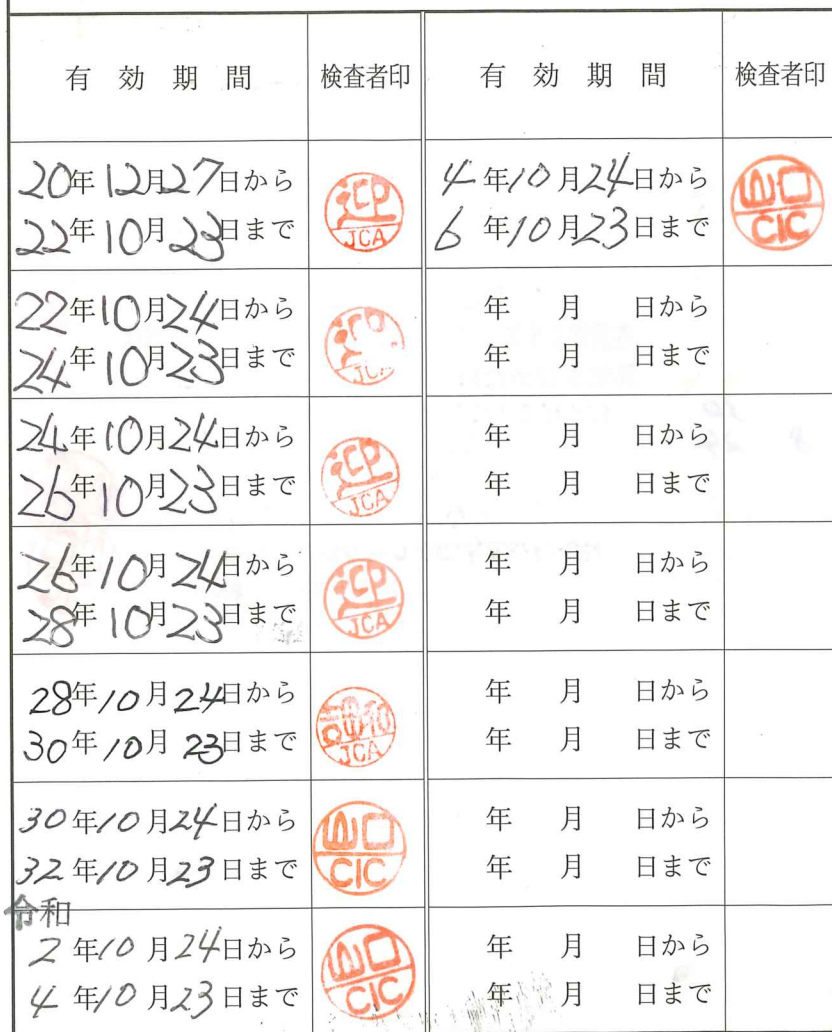 有効期間 検査者印 有効期間 検査者印
20年12月27日から
22年10月23日まで
迎
JCA
4年10月24日から
6年10月23日まで
山口
CIC
22年10月24日から
24年10月23日まで
年 月 日から
年 月 日まで
24年10月24日から
26年10月23日まで
迎
JCA
年 月 日から
年 月 日まで
26年10月24日から
28年10月23日まで
迎
JCA
年 月 日から
年 月 日まで
28年10月24日から
30年10月23日まで
JCA
年 月 日から
年 月 日まで
30年10月24日から
32年10月23日まで
山口
CIC
年 月 日から
年 月 日まで
令和
2年10月24日から
4年10月23日まで
山口
CIC
年 月 日から
年 月 日まで